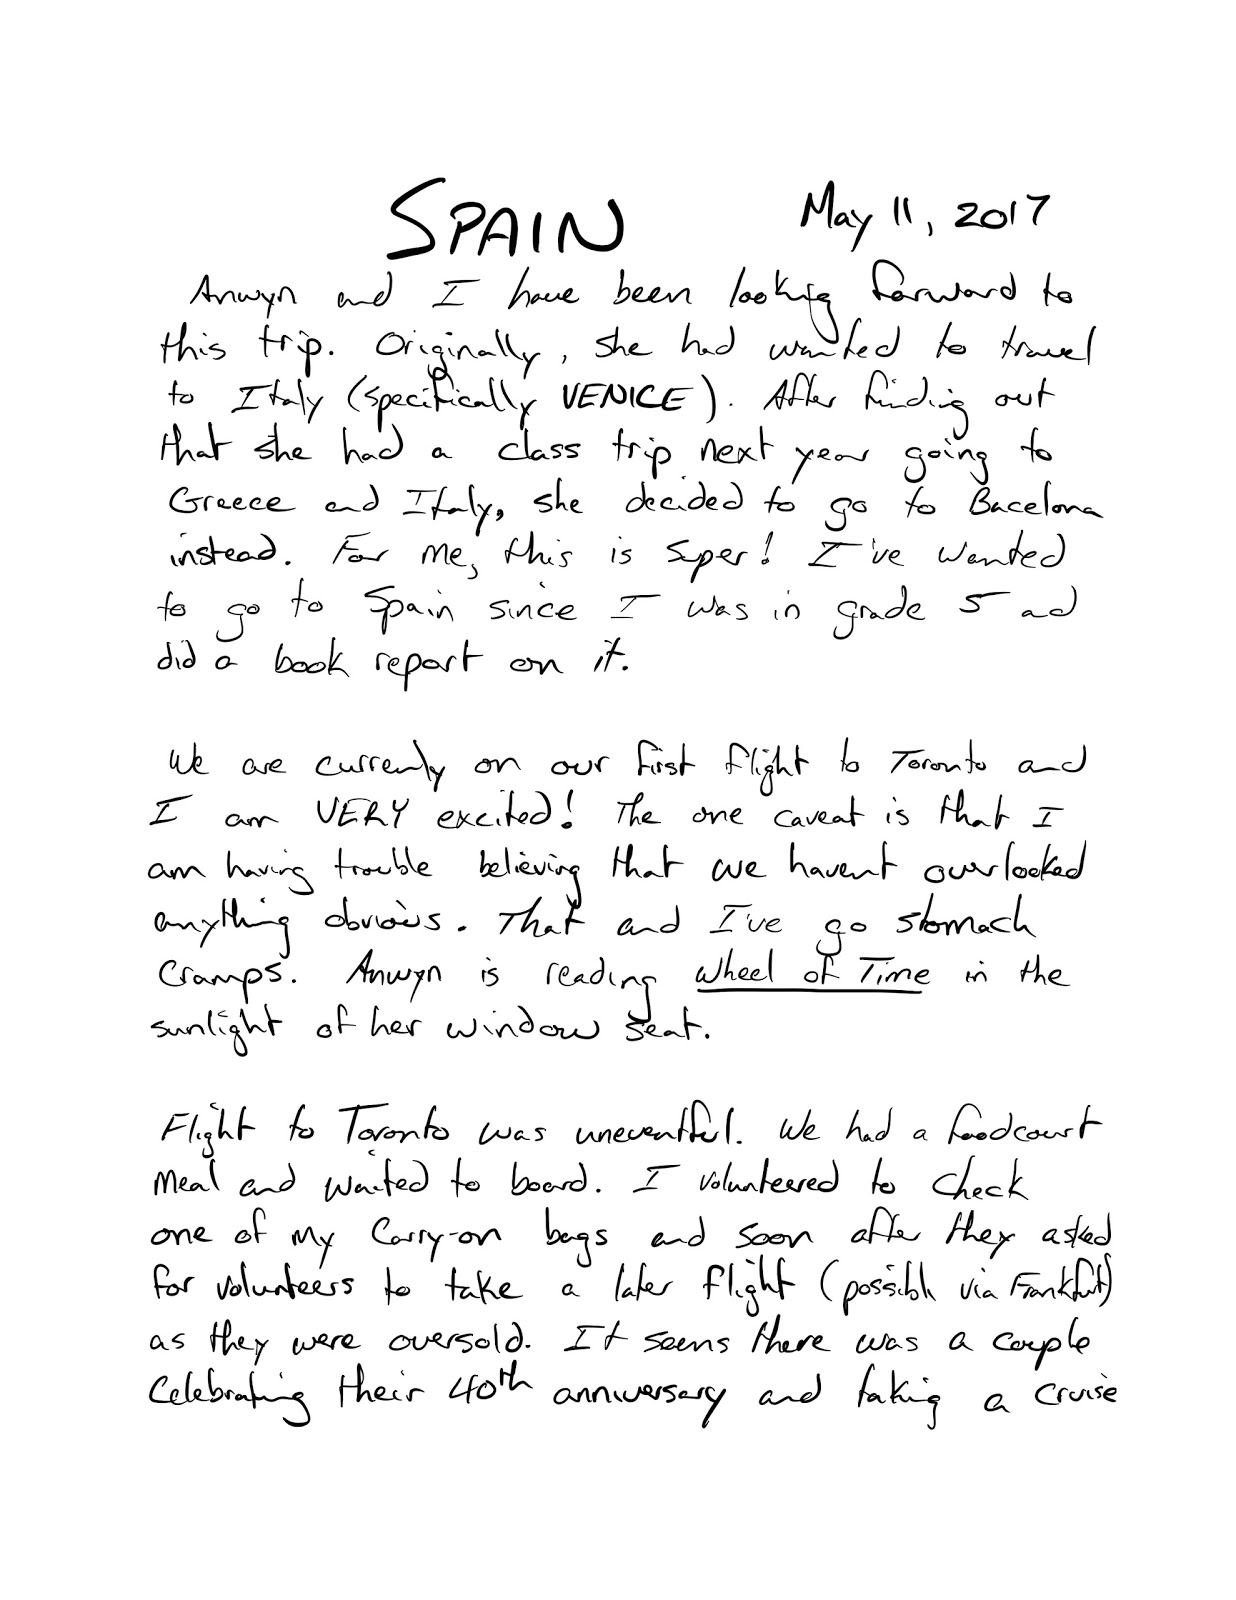 SPAIN May 11, 2017
Anwyn and I have been looking forward to
this trip. Originally, she had wanted to travel
to Italy (specifically VENICE). After finding out
that she had a class trip next year going to
Greece and Italy, she decided to go to Bacelona
instead. For me, this is super! I've wanted
to go to Spain since I was in grade 5 ad
did a book report on it.
We are currenly on our first flight to Toronto and
I am VERY excited! The one caveat is that I
am having trouble believing that we havent overlooked
anything obvious. That and I've go stomach
cramps. Anwyn is reading Wheel of Time in the
sunlight of her window seat.
Flight to Toronto was uneventful. We had a foodcourt
meal and waited to board. I volunteered to check
one of my carry-on bags and soon after they asked
for volunteers to take a later flight (possibl via Frankfut)
as they were oversold. It seems there was a couple
celebrating their 40th anniversary and taking a cruise